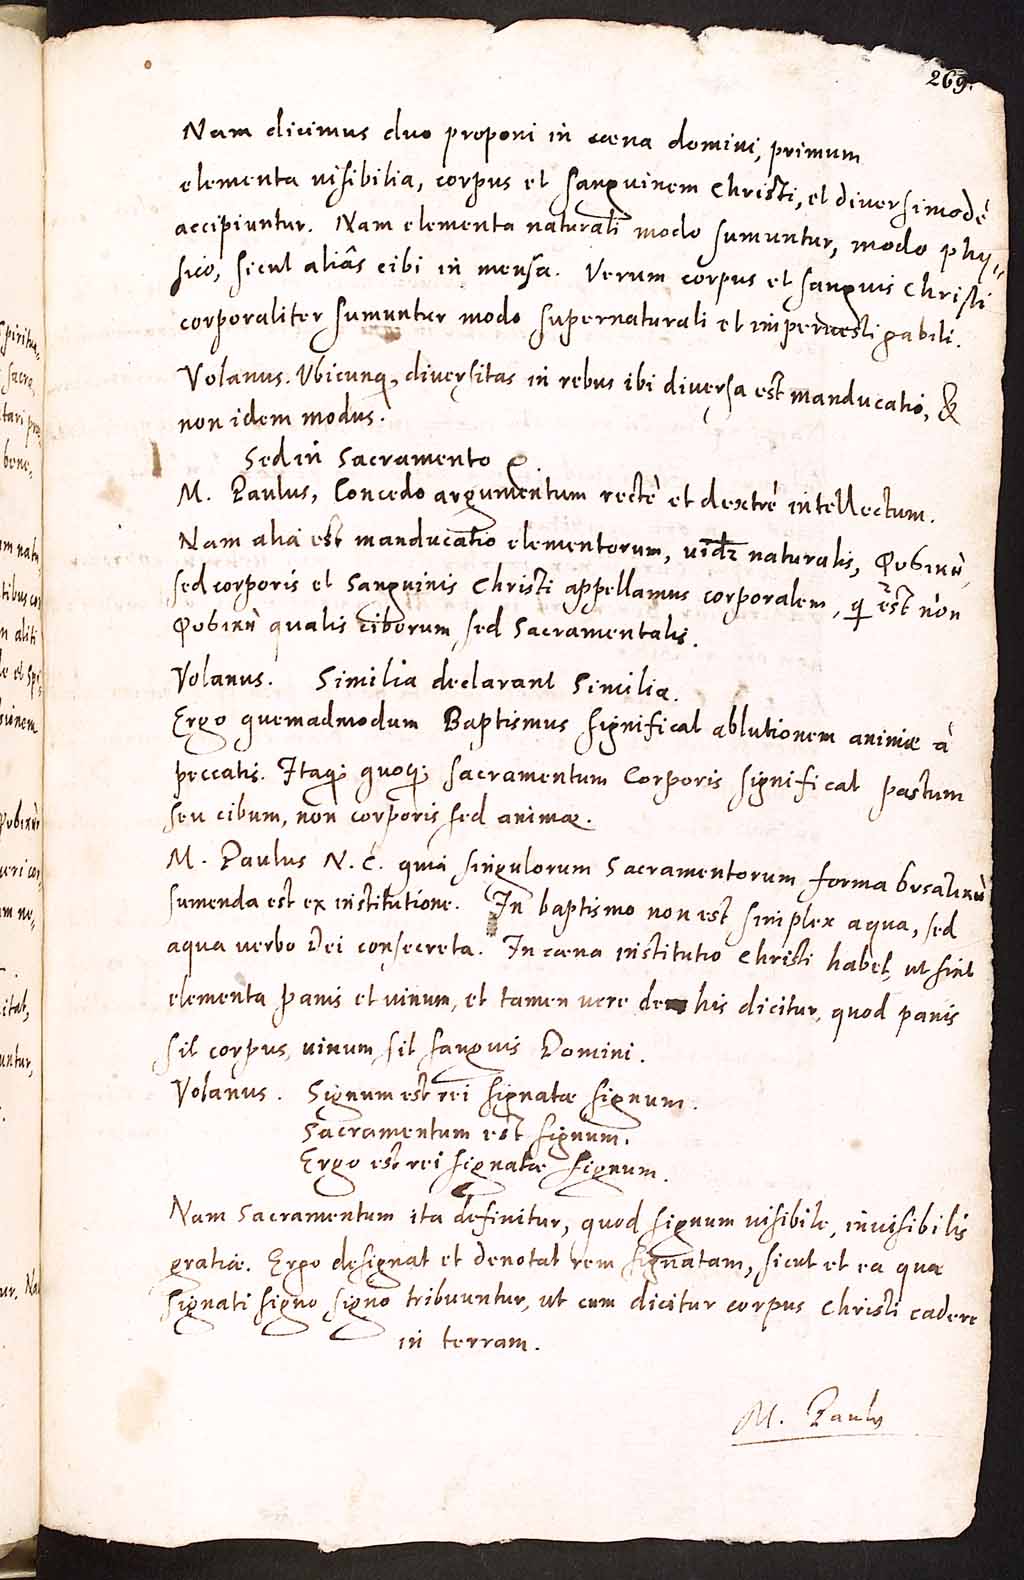 269.
Nam dicimus duo proponi in cœna domini, primum
elementa uisibilia, corpus et sanguinem Christi, et diuersimodè
accipiuntur. Nam elementa naturali modo sumuntur, modo phy=
sico, sicut aliâs cibi in mensa. Verum corpus et sanguis Christi
corporaliter sumuntur modo supernaturali et imperuestigabili.
Volanus. Vbicunq, diuersitas in rebus ibi diuersa est manducatio, &
non idem modus.
Sed in Sacramento ₑ.
M. Paulus, Concedo argumentum rectè et dextrè intellectum.
Nam alia est manducatio elementorum, uidz naturalis, φυσικὴ,
sed corporis et Sanguinis Christi appellamus corporalem, q est non
φυσικὴ qualis ciborum, sed Sacramentalis.
Volanus. Similia declarant Similia.
Ergo quemadmodum Baptismus significat ablutionem animæ à
peccatis. Itaq; quoq; sacramentum Corporis significat pastum
seu cibum, non corporis sed animæ.
M. Paulus N. C. quia singulorum Sacramentorum forma
sumenda est ex institutione. In baptismo non est simplex aqua, sed
aqua uerbo Dei consecreta. In cæna institutio Christi habet, ut sint
elementa panis et uinum, et tamen uere de his dicitur, quod panis
sit corpus, uinum sit sanguis Domini.
Volanus. Signum est rei signatæ signum.
Sacramentum est signum.
Ergo est rei signatæ signum.
Nam Sacramentum ita definitur, quod signum uisibile, inuisibilis
gratiæ. Ergo designat et denotat rem signatam, sicut et ea quæ
signati signo signo tribuuntur, ut cum dicitur corpus Christi cadere
in terram.
M. Paulus